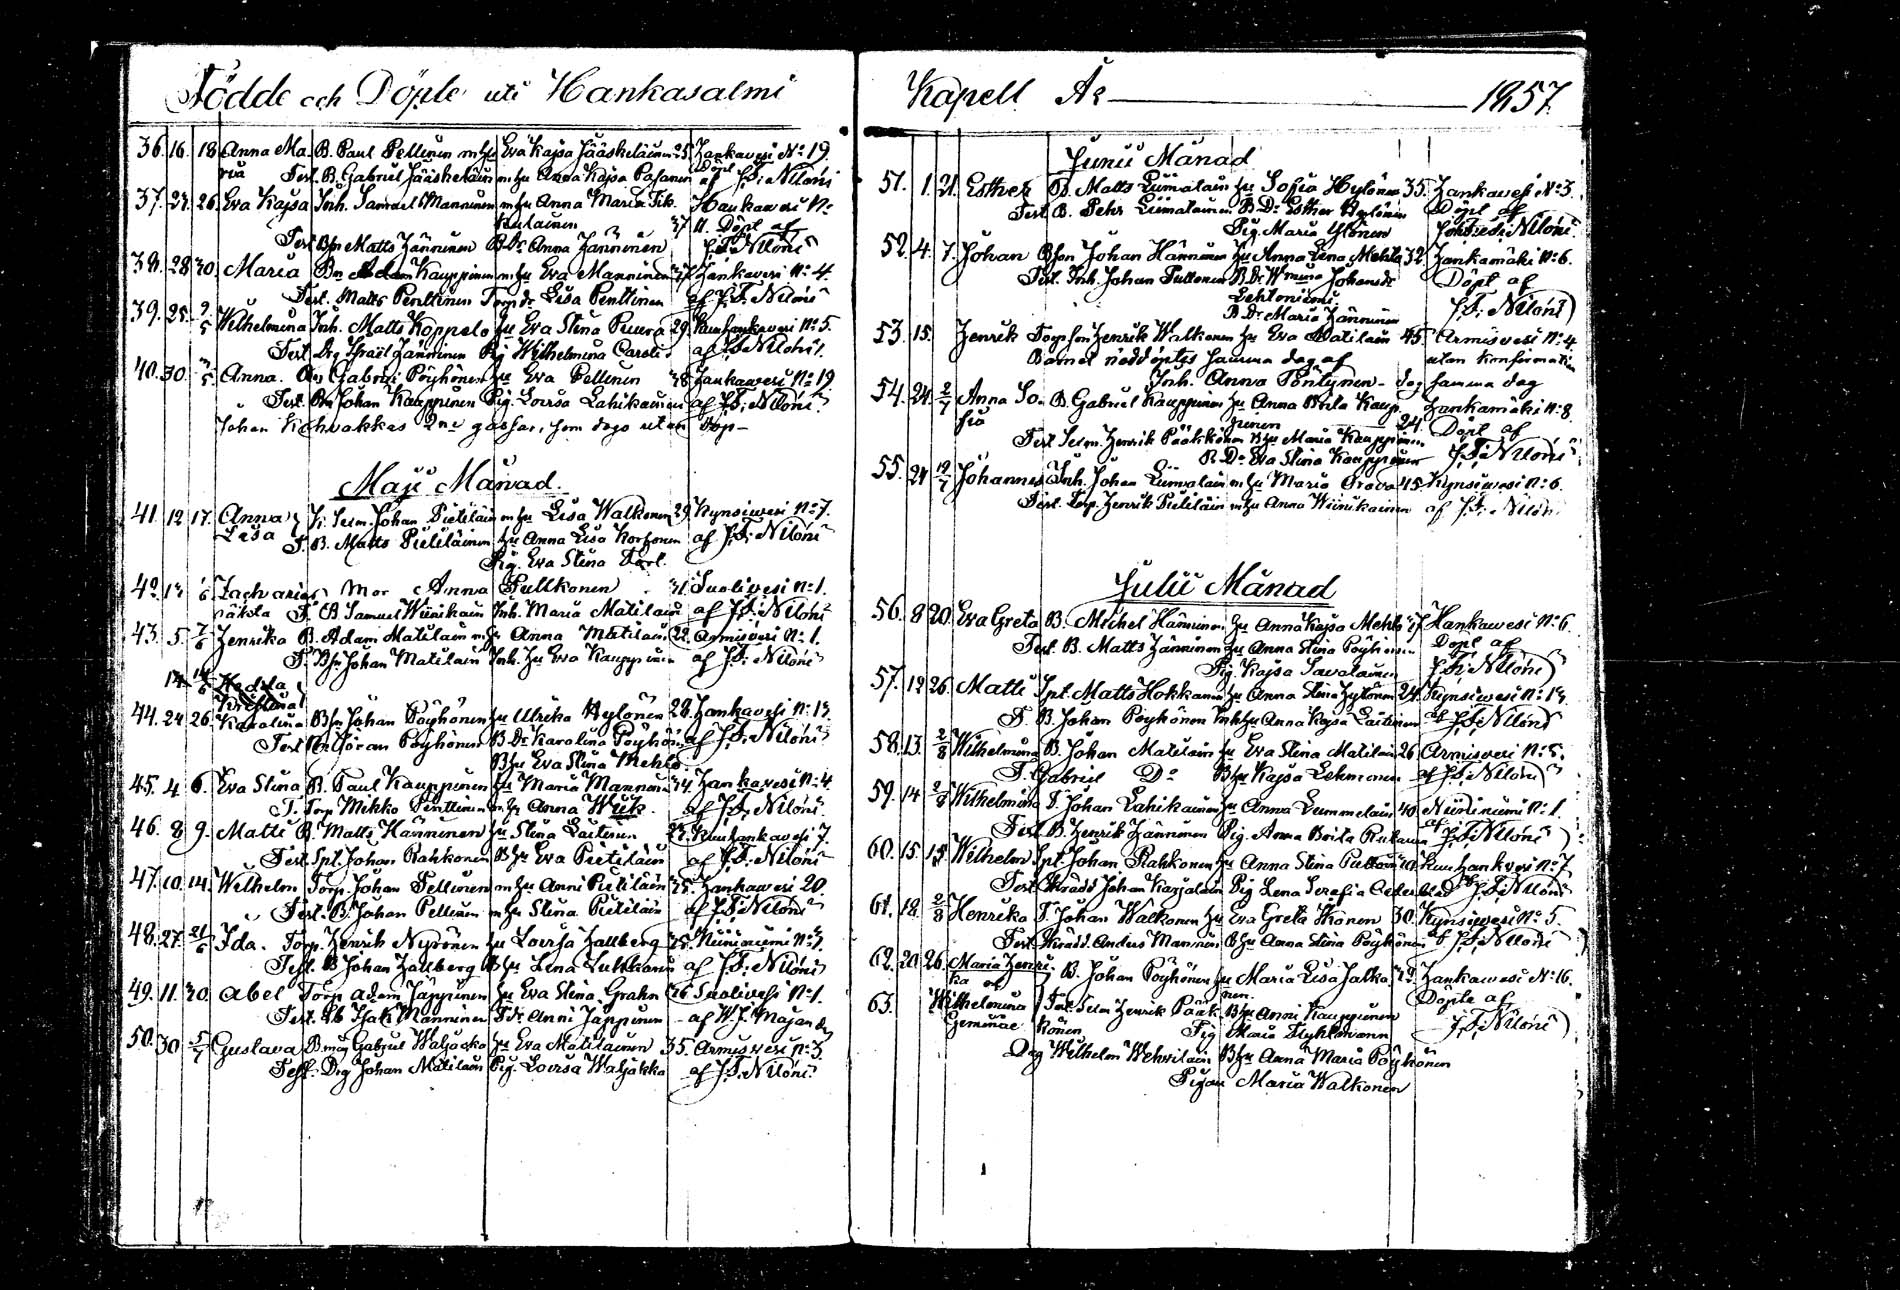 Födde och Döpte uti Hankasalmi
36. 16. 18 Anna Ma- B. Paul Pellinen m hu Eva Kajsa Jääskeläinen 25 Hankavesi No 19.
ria Test. B. Gabriel Jääskeläin m hu Anna Kajsa Pasanen Döpt af J.F. Niloni
37. 24. 26. Eva Kajsa Inh. Samuel Manninen m hu Anna Maria Tik- Hankavesi No
kulainen 37 11. Döpt af
Test. Matts Hänninen B Dr Anna Hänninen J.F. Niloni
38. 28 30 Maria Bn Adam Kauppinen m hu Eva Manninen 37 Hankavesi No 4.
Test. Matts Penttinen Torp dr Lisa Penttinen af J.F. Niloni
39. 25. 2/5 Wilhelmina Inh. Matts Koppelo hu Eva Stina Puura 29. Kuuhankavesi No 5.
Test Drg Israel Hänninen Pig Wilhelmina af J.F. Niloni
40. 30. 3/5 Anna. Gabriel Pöyhönen hu Eva Pellinen 38 Hankawesi No 19
Test. Johan Kauppinen Pig. Lovisa Lahikainen af J.F. Niloni
Johan Kohvakkas 2ne gossar, som dogo utan Dop-
Maji Månad.
41. 12 17. Anna Johan Pietiläin m hu Lisa Walkonen 29. Kynsivesi No 7.
Lisa T. B. Matts Pietiläinen hu Anna Lisa Korhonen af J.F. Niloni
Pig. Eva Stina
42. 13 Zacharias Mor Anna Pulkkonen 31. Suolivesi No 1.
oäkta T. B Samuel Wiinikain Inh. Maria Matilain af J.F. Niloni
43. 5 7/6 Henrika B. Adam Matilain m hu Anna Matilain 22. Armisvesi No 1.
T. Bsn Johan Matilain Inh. hu Eva Kauppinen af J.F. Niloni
14 14/6 Hedda
Kristina
44. 24 26. Karolina Bsn Johan Pöyhönen hu Ulrika Hylönen 28. Hankavesi No 13.
Test Göran Pöyhönen B Dr Karolina Pöyhön af J.F. Niloni
B hu Eva Stina Mehto
45. 4 6. Eva Stina B. Paul Kauppinen hu Maria Manninen 34 Hankavesi No 4
T. Torp Mikko Penttinen m hu Anna Wiik. af J.F. Niloni
46. 8 9. Matti B. Matts Hänninen hu Stina Laitinen Kuuhankavesi 7.
Test Spt. Johan Rahkonen B hu Eva Pietiläin af J.F. Niloni
47. 10. 14. Wilhelm Torp. Johan Pellinen m hu Anni Pietiläin 35. Hankavesi 20.
Test. B. Johan Pellinen m hu Stina Pietiläin af J.F. Niloni
48. 27. 21/6 Ida. Torp. Henrik Nyrönen hu Lovisa Hallberg 35. Niininiemi No
Test. B Johan Hallberg B hu Lena Lukkonen af J.F. Niloni
49. 11. 20. Abel Torp Adam Jäppinen hu Eva Stina Grahn 26 Suolivesi No 1.
Test. Isak Manninen Anni Jäppinen af W.J. Majander
50. 30 5/7 Gustava B måg Gabriel Waljacka hu Eva Matilainen 35. Armisvesi No 3.
Test. Drg Johan Matilain Pig. Lovisa Waljakka af J.F. Niloni
Kapell År 1857.
Junii Månad
51. 1. 21. Esther B. Matts Liimatain hu Sofia Hylönen 35. Hankavesi No 3.
Test B. Pehr Liimatainen B Dr Esther Hylönen Döpt af
Pig. Maria Ylönen J.F. Niloni
52. 4. 7. Johan Bson Johan Hänninen hu Anna Lena Mehto 32 Hankamäki No 6.
Test. Inh. Johan Tuttonen B Dr Wmina Johansdr Döpt af
Lehtoniemi J.F. Niloni
B Dr Maria Hänninen
53. 15. Henrik Torp son Henrik Walkonen hu Eva Matilain 45 Armisvesi No 4
Barnet nöddöptes samma dag af utan konfirmation
Inh. Anna Pöntynen - dog samma dag
54. 24. 2/7 Anna So- B. Gabriel Kauppinen hu Anna Brita Kaup- Hankamäki No 8.
fia pinen 24 Döpt af
Test Henrik Pääkkönen B hu Maria Kauppinen J.F. Niloni
B. Dr Eva Stina Kauppinen
55. 24 12/7 Johannes Inh. Johan Liimatain m hu Maria Orava 45 Kynsivesi No 6.
Test. Torp. Henrik Pietiläin m hu Anna Wiinikainen af J.F. Niloni
Julii Månad
56. 8 20. Eva Greta B. Michel Hänninen hu Anna Kajsa Mehto 27 Hankavesi No 6.
Test. B. Matts Hänninen hu Anna Stina Pöyhönen Döpt af
Pig. Kajsa Savolainen J.F. Niloni
57. 12 26. Matti Spt. Matts Hokkanen hu Anna Stina Hytönen 24. Kynsivesi No 13.
T. B. Johan Pöyhönen Inh hu Anna Kajsa Laitinen af J.F. Niloni
58. 13. 2/8 Wilhelmina B. Johan Matilain hu Eva Stina Matilain 26 Armisvesi No 5.
T. Gabriel Do B hu Kajsa Lehmonen af J.F. Niloni
59. 14 2/8 Wilhelmina T. Johan Lahikainen hu Anna Lummelain 40. Niininiemi No 1.
Test B. Henrik Hänninen Pig. Anna Brita af J.F. Niloni
60. 15. 15 Wilhelm Spt. Johan Rahkonen hu Anna Stina 40 Kuuhankvesi No 7
Test Skrädd Johan Karjalain Pig Lena Serafia Cederblad af J.F. Niloni
61. 18. 2/8 Henrika T. Johan Walkonen hu Eva Greta Ikonen 30. Kynsivesi No 5.
Test Skrädd. Anders Manninen B hu Anna Stina Pöyhönen af J.F. Niloni
62. 20 26. Maria Henri- B. Johan Pöyhönen hu Maria Lisa Jalka- 22 Hankavesi No 16.
ka och nen. Döpte af
63. Wilhelmina Test Henrik Pääk- B hu Anni Kauppinen J.F. Niloni
Geminae könen Pig Maria Styhlmann
Drg Wilhelm Wehvilain B hu Anna Maria Pöyhönen
Pigan Maria Walkonen